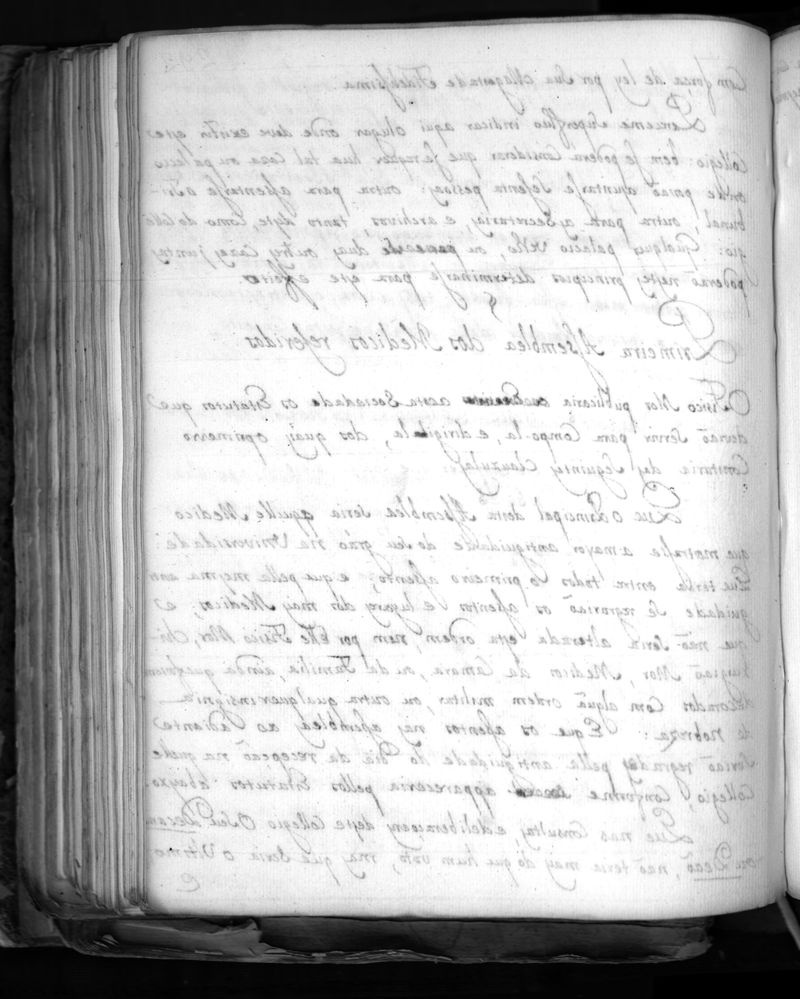 Com força de ley, por Sua Magestade Fidelissima.
Pareceme superfluo indicar aqui o lugar onde deve existir este
Collegio: bem se poderá considerar que se requer hua tal Caza ou palacio
onde possaõ ajuntarse sesenta pessoas; outra para assentarse o Tri-
bunal, outra para a Secretaria, e archivos, tanto deste, como do Colle
gio: qualquer palacio velho, ou duas outras Cazas juntas
poderaõ nestes principios determinarse para este effeito
§
Primeira Assemblea dos Medicos referidos
O Fisico Mor publicaria a esta Sociedade os Estatutos que
deviaõ servir para compo-la, e dirigila, dos quais o primeiro
Constaria das seguintes Clauzulas
Que o Principal desta Assemblea seria aquelle Medico
que mostrasse a mayor antiguidade de seu gráo na Universidade:
Que teria entre todos o primeiro assento; e que pella mesma anti
guidade se regrariaõ os assentos e lugares dos mais Medicos; e
que naõ seria alterada esta ordem, nem por elle Fisico Mor, Chi-
rurgiaõ Mor, Medicos da Camara, ou da Familia, ainda que fossem
decorados com algũa ordem militar, ou outra qualquer insignia
de nobreza: E que os assentos nas assembleas ao adiante
seriaõ regrados pella antiguidade do Dia da recepçaõ na quelle
Collegio, conforme appareceria pellos Estatutos abaixo.
Que nas Consultas, e deliberaçoens deste Collegio O seu Decan
ou Deaõ, naõ teria mais do que hum voto, mas que seria o Ultimo